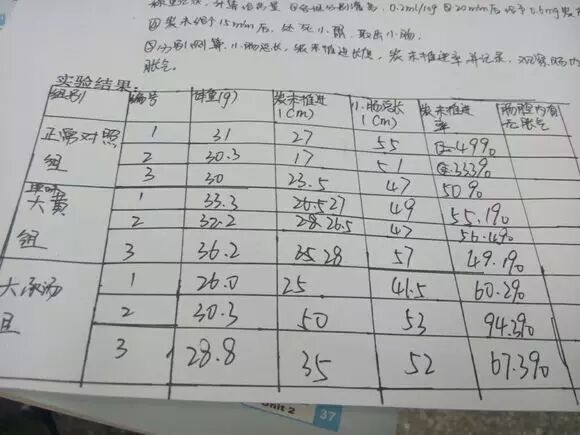 ②炭末给予15min后,处死小鼠,取出小肠.
③分别测算,小肠总长,炭末推进长度,炭末推进率并记录,观察肠内
胀气.
实验结果:
组别 编号 体重(g) 炭末推进(cm) 小肠总长(cm) 炭末推进率 肠腔内有无胀气
正常对照组 1 31 27 55 49%
2 30.3 17 51 33.3%
3 30 23.5 47 50%
大黄组 1 33.3 26.5 27 49 55.1%
2 32.2 28 26.5 47 56.4%
3 36.2 35 28 57 49.1%
大承汤 1 26.0 25 41.5 60.2%
2 30.3 50 53 94.3%
3 28.8 35 52 67.3%
Unit 2
37